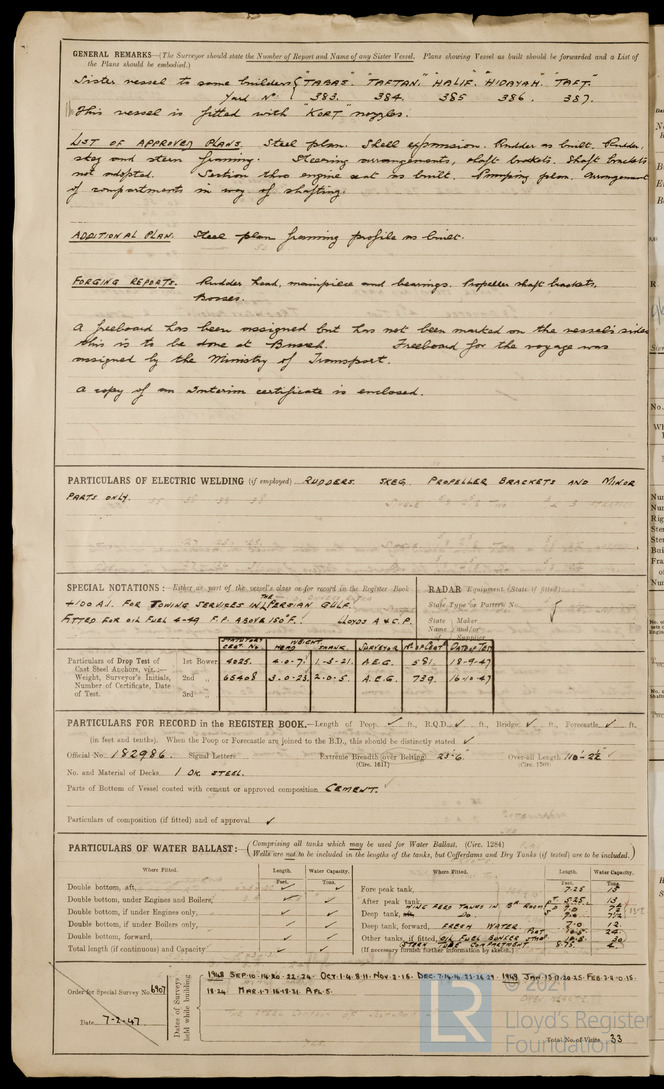 GENERAL REMARKS—(The Surveyor should state the Number of Report and Name of any Sister Vessel. Plans showing Vessel as built should be forwarded and a List of
the Plans should be embodied.)
Sister vessel to same builders { "TABAS." "TAFTAN." "HALIF." "HIDAYAH." "TAFT."
Yard Nº 383. 384. 385 386. 387.
This vessel is fitted with "KORT" nozzles.
LIST OF APPROVED PLANS. Steel plan. Shell expansion. Rudder as built. Rudder,
skeg and stern framing. Steering arrangements, shaft brackets. Shaft brackets
not adopted. Section thro engine seat as built. Pumping plan. Arrangement
of compartments in way of shafting.
ADDITIONAL PLAN. Steel plan framing profile as built.
FORGING REPORTS. Rudder head, mainpiece and bearings. Propeller shaft brackets,
Bosses.
A freeboard has been assigned but has not been marked on the vessel's sides
this is to be done at Freeboard for the voyage was
assigned by the Ministry of Transport.
A copy of an Interim certificate is enclosed.
PARTICULARS OF ELECTRIC WELDING (if employed) RUDDERS. SKEG. PROPELLER BRACKETS AND MINOR
PARTS ONLY.
SPECIAL NOTATIONS:—Either as part of the vessel's class or for record in the Register Book
+100 A.1. FOR TOWING SERVICES IN THE PERSIAN GULF.
FITTED FOR OIL FUEL 4-49 F.P. ABOVE 150°F. LLOYDS A & C.P.
RADAR Equipment (State if fitted)
State Type or Pattern No.
State Name Maker and/or Supplier
STATUTORY CERT. No. WEIGHT HEAD SHANK SURVEYOR Nº OF CERT DATE OF TEST
Particulars of Drop Test of Cast Steel Anchors, viz.:—
Weight, Surveyor's Initials, Number of Certificate, Date of Test.
1st Bower 4025. 4-0-7. 1-3-21. A.E.G. 581. 18-9-47
2nd " 65408 3-0-23. 2-0-5. A.E.G. 739. 16-10-47
3rd "
PARTICULARS FOR RECORD in the REGISTER BOOK.—Length of Poop ✓ ft., R.Q.D. ✓ ft., Bridge ✓ ft., Forecastle ✓ ft.
(in feet and tenths). When the Poop or Forecastle are joined to the B.D., this should be distinctly stated ✓
Official No. 182986. Signal Letters Extreme Breadth over Belting 23'-6" Over-all Length
(Circ. 1611) (Circ. 1760)
No. and Material of Decks 1 DK STEEL.
Parts of Bottom of Vessel coated with cement or approved composition CEMENT.
Particulars of composition (if fitted) and of approval ✓
PARTICULARS OF WATER BALLAST:—(Comprising all tanks which may be used for Water Ballast. (Circ. 1284)
(Wells are not to be included in the lengths of the tanks, but Cofferdams and Dry Tanks (if tested) are to be included.)
Where Fitted. Length. Feet. Water Capacity. Tons.
Double bottom, aft, ✓ ✓
Double bottom, under Engines and Boilers, ✓ ✓
Double bottom, if under Engines only, ✓ ✓
Double bottom, if under Boilers only, ✓ ✓
Double bottom, forward, ✓ ✓
Total length (if continuous) and Capacity ✓ ✓
Where Fitted. Length. Feet. Water Capacity. Tons.
Fore peak tank, 7.25 13
After peak tank, 5.25 13
Deep tank, aft, WING FEED TANKS IN Bº ROOM P 7.0 7½
Do. S 7.0 7½
Deep tank, forward, FRESH WATER 7.0 12
Other tanks, if fitted, OIL FUEL BUNKER PORT 10.5
STBD. 10.5 30
STERN TUBE COMPARTMENT 8.75
(If necessary furnish further information by sketch.)
Order for Special Survey No. 6907
Date 7-2-47.
Dates of Surveys held while building
1948 SEP. 10. 14. 20. 22. 24. OCT. 1. 4. 8. 11. NOV. 2. 15. DEC. 7. 14. 16. 21. 24. 29. 1949 JAN. 13. 17. 20. 25. FEB. 2. 8. 10. 15.
18. 24. MAR. 1. 7. 16. 18. 31. APL. 5.
Total No. of Visits 33
© 2021
LR
Lloyd's Register
Foundation